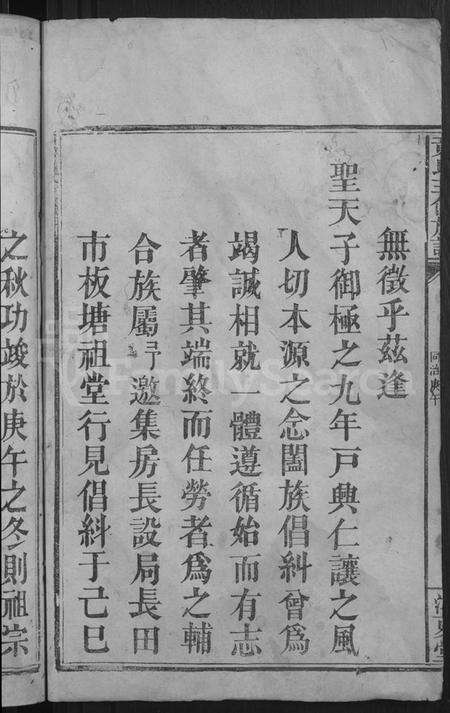 無徵乎茲逢
聖天子御極之九年戸興仁讓之風
人切本源之念闔族倡糾曾爲
竭誠相就一體遵循始而有志
者肇其端終而任勞者爲之輔
合族屬予邀集房長設局長田
市板塘祖堂行見倡糾于己巳
之秋功竣於庚午之冬則祖宗
FamilySearch